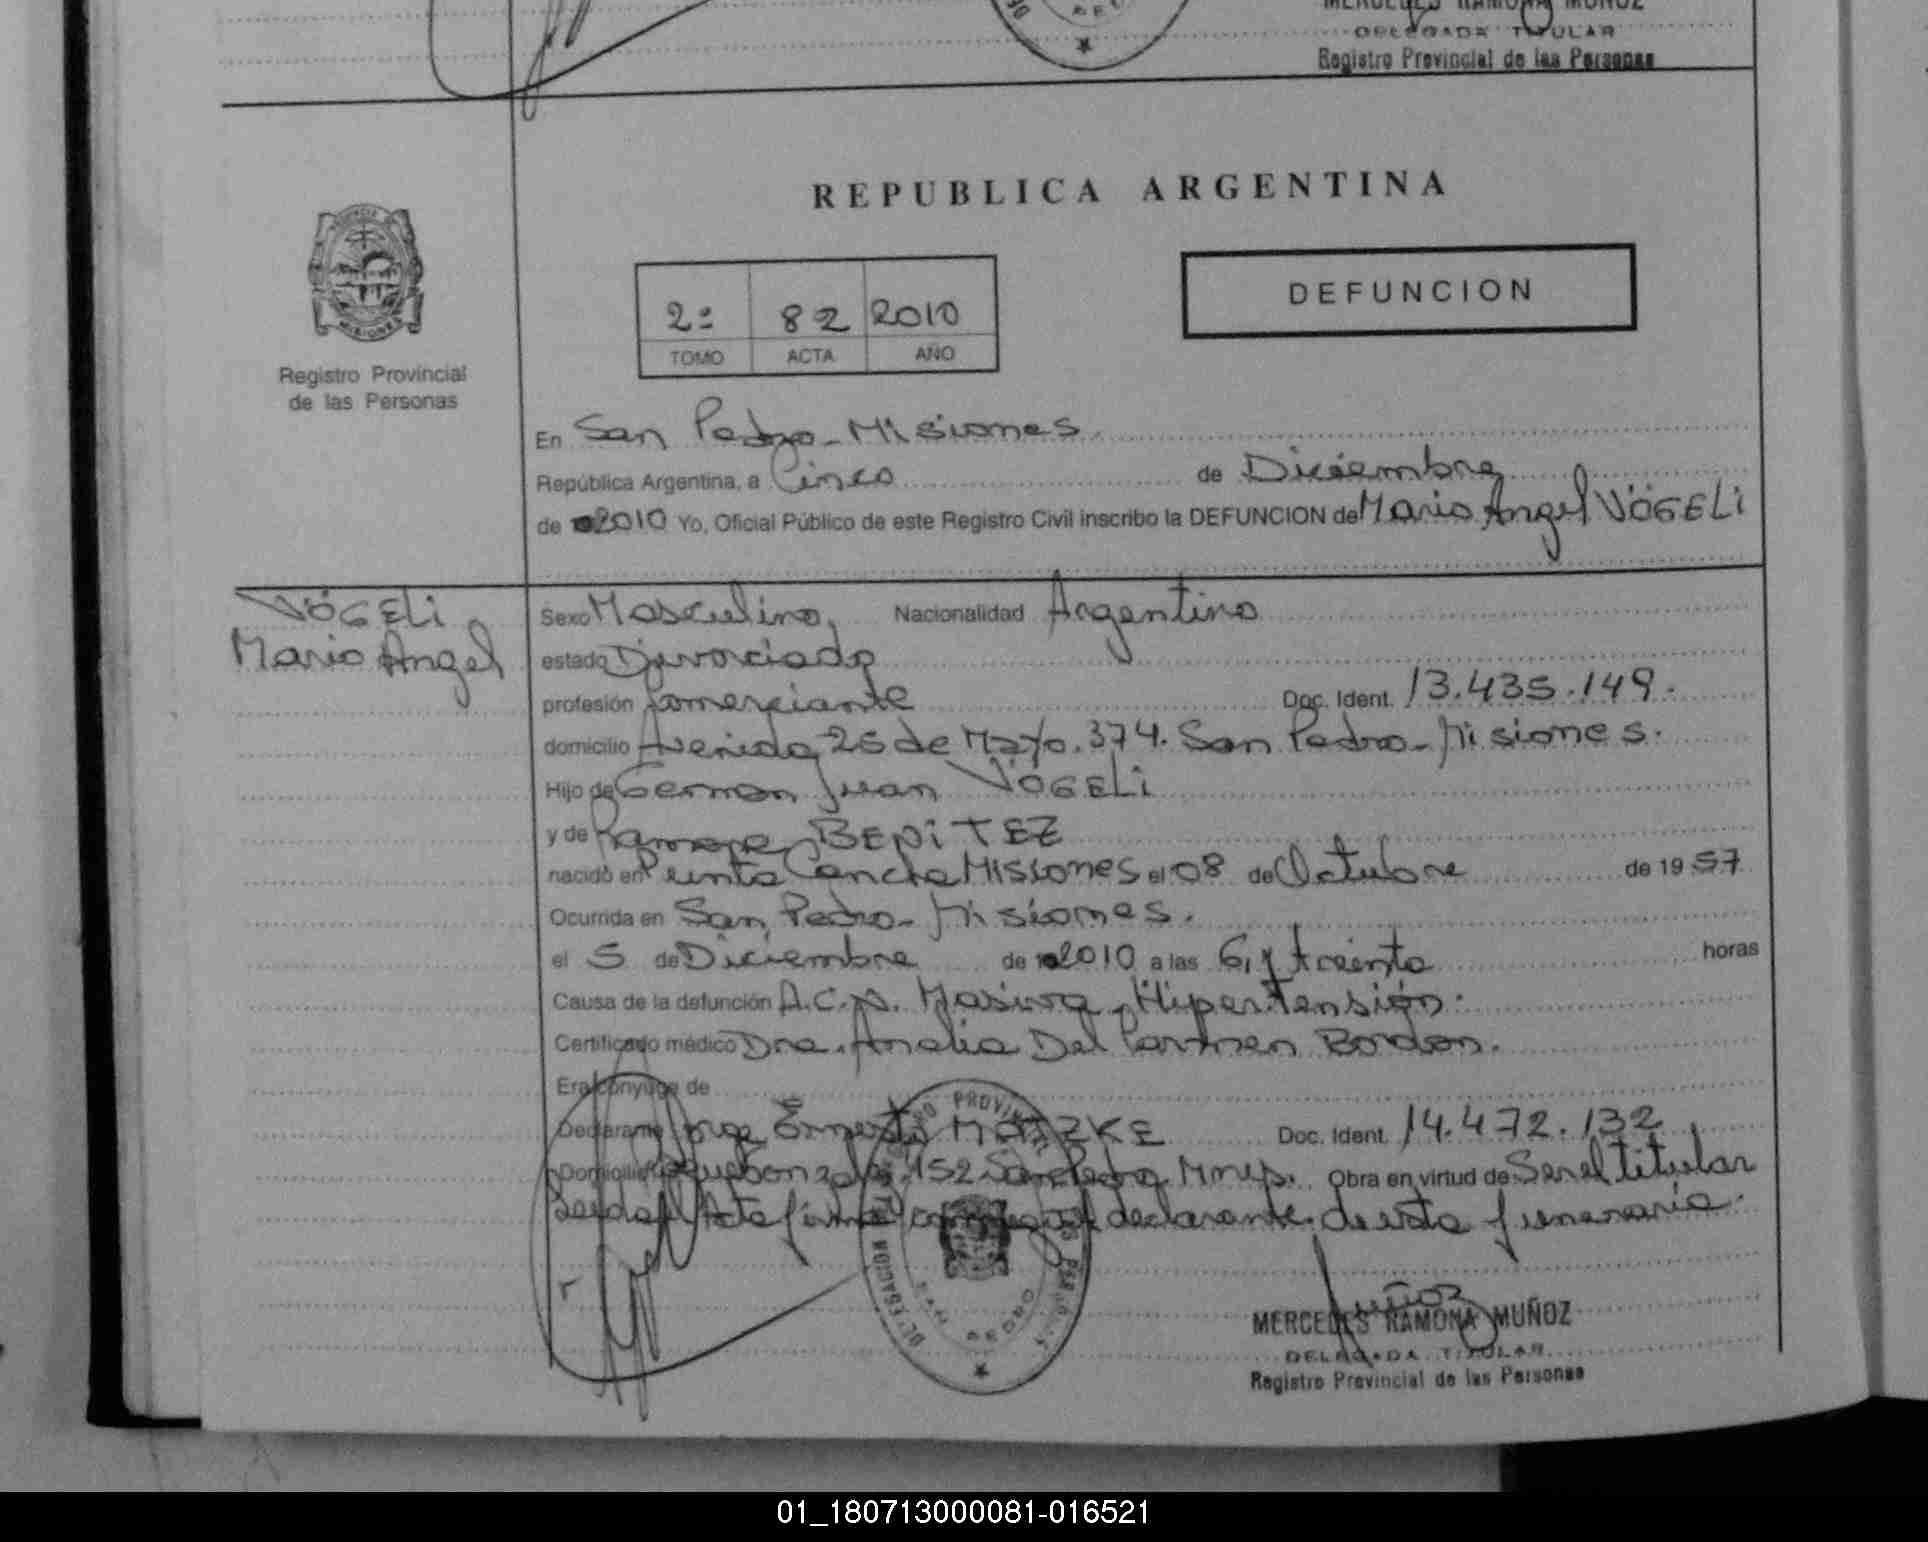 MERCEDES RAMONA MUÑOZ
DELEGADA TITULAR
Registro Provincial de las Personas
REPUBLICA ARGENTINA
MISIONES
2º 82 2010
TOMO ACTA AÑO
DEFUNCION
Registro Provincial
de las Personas
En San Pedro - Misiones
República Argentina, a Cinco de Diciembre
de 2010 Yo, Oficial Público de este Registro Civil inscribo la DEFUNCION de Mario Angel VÖGELi
VÖGELi
Mario Angel
Sexo Masculino. Nacionalidad Argentino
estado Divorciado
profesión Comerciante Doc. Ident. 13.435.149.
domicilio Avenida 25 de Mayo. 374. San Pedro - Misiones.
Hijo de German Juan VÖGELi
y de Ramona BENiTEZ
nacido en Cancha Misiones el 08 de Octubre de 1957
Ocurrida en San Pedro - Misiones.
el 5 de Diciembre de 2010 a las 6, y treinta horas
Causa de la defunción A.C.V. Masivo - Hipertensión.
Certificado médico Dra. Analia Del Carmen Bordon.
Era cónyuge de
Declarante Jorge Ernesto Doc. Ident. 14.472.132
Domicilio 152 San Pedro Mnes. Obra en virtud de Ser el titular
Leida el Acta firma el declarante. de esta funeraria.
MERCEDES RAMONA MUÑOZ
DELEGADA TITULAR
Registro Provincial de las Personas
01_180713000081-016521